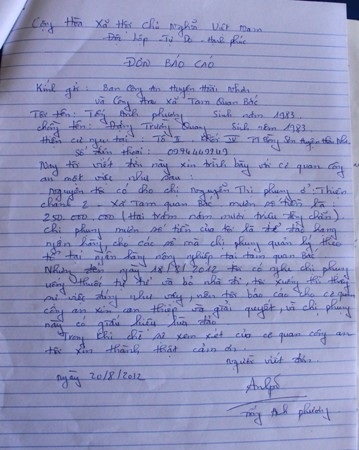 Cộng Hòa Xã Hội Chủ Nghĩa Việt Nam
Độc lập - Tự Do - Hạnh phúc
ĐƠN BÁO CÁO
Kính gởi: Ban Công An huyện Hoài Nhơn
và Công An Xã Tam Quan Bắc
Tôi tên: Tống Anh phương Sinh năm 1983
chồng tên: Trương Quang Sinh năm 1983.
hiện cư ngụ tại: Tổ 2
số điện thoại: 0974407247
Nay tôi viết đơn này xin trình bày với cơ quan công
an một việc như sau:
Nguyên tôi có cho chị Nguyễn Thị phụng ở: Thiện
chánh 2 - Xã Tam quan Bắc mượn số tiền là
250.000.000 (Hai trăm năm mươi triệu đồng chẵn)
chị phụng mượn số tiền của tôi là để đáo hạng
ngân hàng, cho các sổ mà chị phụng quản lý, theo
tổ tại ngân hàng nông nghiệp tại tam quan Bắc
Nhưng đến ngày 18/8/2012 tôi có nghe chị phụng
uống thuốc tự tử và bỏ nhà đi, tôi xuống thì thấy
sự việc đúng như vậy, nên tôi báo cáo cho cơ quan
công an xin can thiệp và giải quyết, vì chị phụng
này có giấu hiệu lừa đảo
Trong khi chờ sự xem xét của cơ quan công an
tôi xin thành thật cảm ơn.
Người viết đơn.
ngày 20/8/2012
Tống Anh phương